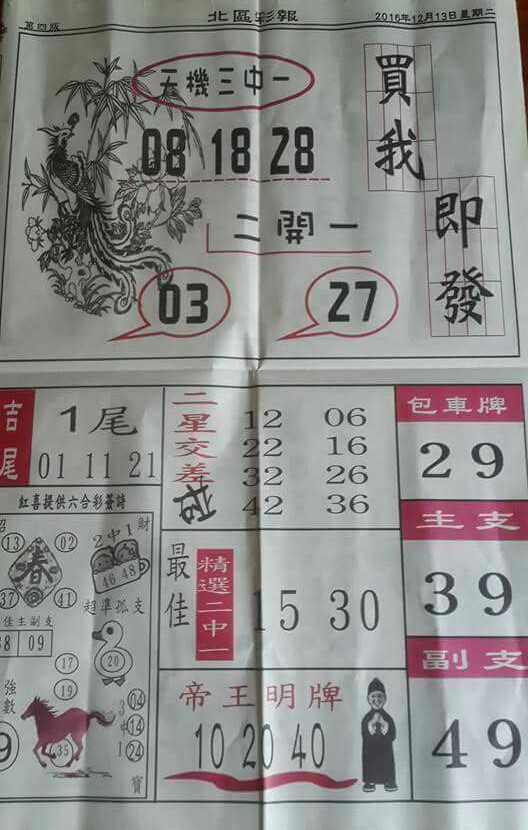 第四版
北區彩報
2016年12月13日星期二
天機三中一
08 18 28
二開一
03 27
買我
即發
吉尾
1尾
01 11 21
二星交差
12 06
22 16
32 26
42 36
包車牌
29
主支
39
副支
49
最佳
精選二中一
15 30
帝王明牌
10 20 40
紅喜提供六合彩簽詩
招
財
13 02
春
37 41
2中1
46 48
超準孤支
20
佳主副支
38 09
17
19
強數
9
35
3中1
04
14
24
寶